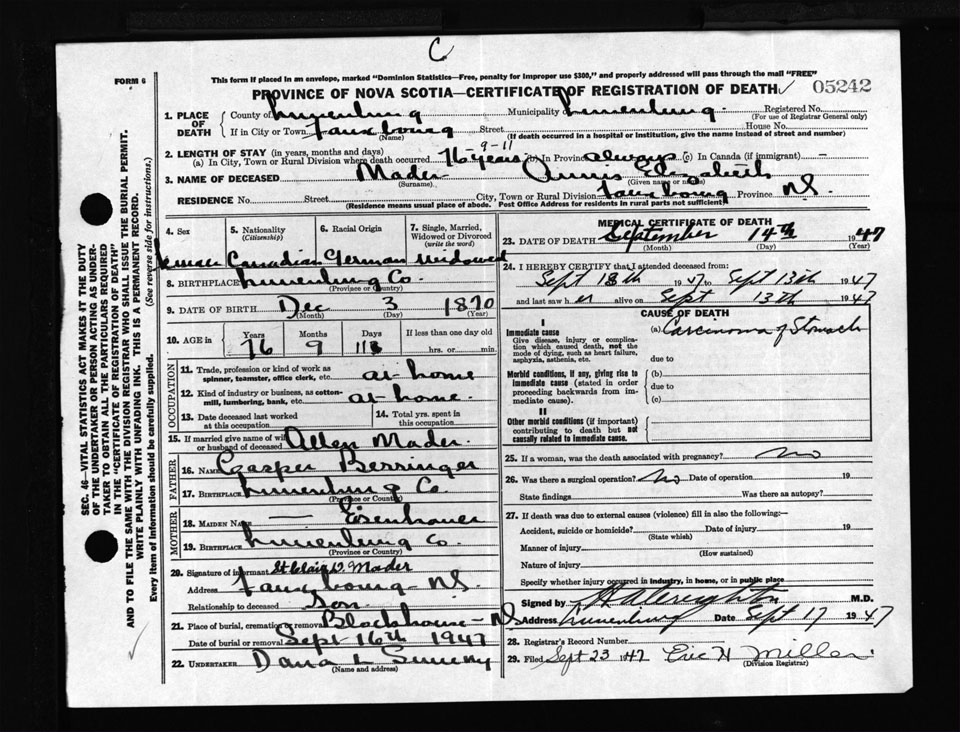 C
FORM 6
This form if placed in an envelope, marked "Dominion Statistics—Free, penalty for improper use $300," and properly addressed will pass through the mail "FREE"
PROVINCE OF NOVA SCOTIA—CERTIFICATE OF REGISTRATION OF DEATH ✓ 05242
1. PLACE OF DEATH County of Lunenburg Municipality of Lunenburg. Registered No.
(For use of Registrar General only)
If in City or Town Fauxbourg Street House No.
(Name) (If death occurred in a hospital or institution, give the name instead of street and number)
2. LENGTH OF STAY (in years, months and days)
(a) In City, Town or Rural Division where death occurred 76 years - 9 - 11 (b) In Province always (c) In Canada (if immigrant) —
3. NAME OF DECEASED Mader Annis Elizabeth
(Surname) (Given name or names)
RESIDENCE No. Street City, Town or Rural Division Fauxbourg Province N.S.
(Residence means usual place of abode. Post Office Address for residents in rural parts not sufficient)
4. Sex 5. Nationality (Citizenship) 6. Racial Origin 7. Single, Married, Widowed or Divorced (write the word)
Canadian German Widowed
8. BIRTHPLACE Lunenburg Co.
(Province or Country)
9. DATE OF BIRTH Dec 3 1870
(Month) (Day) (Year)
10. AGE in Years Months Days If less than one day old
76 9 11 hrs. or min.
OCCUPATION
11. Trade, profession or kind of work as spinner, teamster, office clerk, etc. at home
12. Kind of industry or business, as cotton-mill, lumbering, bank, etc. at home.
13. Date deceased last worked at this occupation 14. Total yrs. spent in this occupation
15. If married give name of wife or husband of deceased Allen Mader.
FATHER
16. NAME Casper Berringer
17. BIRTHPLACE Lunenburg Co.
(Province or Country)
MOTHER
18. MAIDEN NAME — Eisenhauer
19. BIRTHPLACE Lunenburg Co.
(Province or Country)
20. Signature of informant St Clair V. Mader
Address Fauxbourg N.S.
Relationship to deceased Son.
21. Place of burial, cremation or removal Blockhouse - N.S
Date of burial or removal Sept 16th 1947
22. UNDERTAKER Dana L Sweeny
(Name and address)
MEDICAL CERTIFICATE OF DEATH
23. DATE OF DEATH September 14th 1947
(Month) (Day)
24. I HEREBY CERTIFY that I attended deceased from:
Sept 1947 to Sept 13th 1947
and last saw her alive on Sept 13th 1947
CAUSE OF DEATH
I
Immediate cause
Give disease, injury or complication which caused death, not the mode of dying, such as heart failure, asphyxia, asthenia, etc.
(a) Carcinoma of Stomach
due to
Morbid conditions, if any, giving rise to immediate cause (stated in order proceeding backwards from immediate cause).
(b)
due to
(c)
II
Other morbid conditions (if important) contributing to death but not causally related to immediate cause.
25. If a woman, was the death associated with pregnancy? no
26. Was there a surgical operation? no Date of operation 19
State findings Was there an autopsy?
27. If death was due to external causes (violence) fill in also the following:
Accident, suicide or homicide? Date of injury 19
(State which)
Manner of injury
(How sustained)
Nature of injury
Specify whether injury occurred in industry, in home, or in public place
Signed by H A Creighton M.D.
Address Lunenburg Date Sept 17 1947
28. Registrar's Record Number
29. Filed Sept 23 1947 Eric H Miller.
(Division Registrar)
SEC. 46—VITAL STATISTICS ACT MAKES IT THE DUTY
OF THE UNDERTAKER OR PERSON ACTING AS UNDERTAKER
TO OBTAIN ALL THE PARTICULARS REQUIRED
IN THE "CERTIFICATE OF REGISTRATION OF DEATH"
AND TO FILE THE SAME WITH THE DIVISION REGISTRAR WHO SHALL ISSUE THE BURIAL PERMIT.
WRITE PLAINLY WITH UNFADING INK. THIS IS A PERMANENT RECORD.
Every item of information should be carefully supplied. (See reverse side for instructions.)